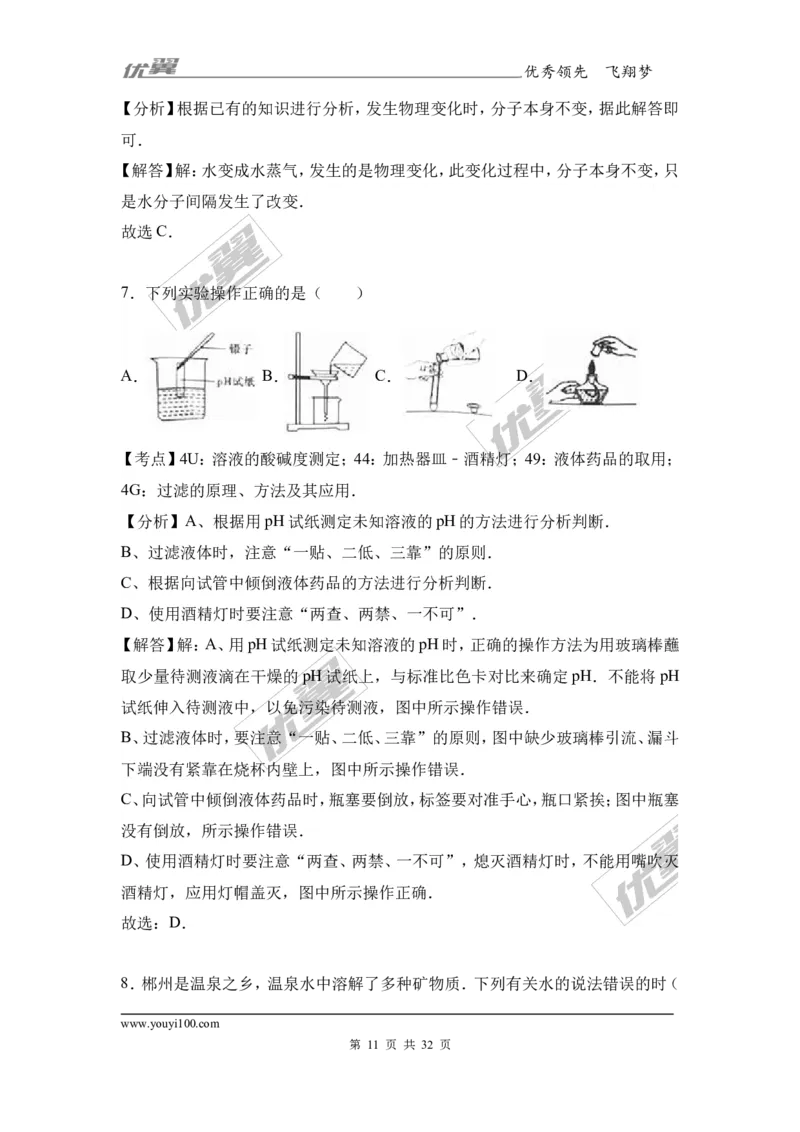 优翼 优秀领先 飞翔梦
【分析】根据已有的知识进行分析，发生物理变化时，分子本身不变，据此解答即
可．
【解答】解：水变成水蒸气，发生的是物理变化，此变化过程中，分子本身不变，只
是水分子间隔发生了改变．
故选C．
7．下列实验操作正确的是（　　）
镊子
pH试纸
A． B． C． D．
【考点】4U：溶液的酸碱度测定；44：加热器皿﹣酒精灯；49：液体药品的取用；
4G：过滤的原理、方法及其应用．
【分析】A、根据用pH试纸测定未知溶液的pH的方法进行分析判断．
B、过滤液体时，注意“一贴、二低、三靠”的原则．
C、根据向试管中倾倒液体药品的方法进行分析判断．
D、使用酒精灯时要注意“两查、两禁、一不可”．
【解答】解：A、用pH试纸测定未知溶液的pH时，正确的操作方法为用玻璃棒蘸
取少量待测液滴在干燥的pH试纸上，与标准比色卡对比来确定pH．不能将pH
试纸伸入待测液中，以免污染待测液，图中所示操作错误．
B、过滤液体时，要注意“一贴、二低、三靠”的原则，图中缺少玻璃棒引流、漏斗
下端没有紧靠在烧杯内壁上，图中所示操作错误．
C、向试管中倾倒液体药品时，瓶塞要倒放，标签要对准手心，瓶口紧挨；图中瓶塞
没有倒放，所示操作错误．
D、使用酒精灯时要注意“两查、两禁、一不可”，熄灭酒精灯时，不能用嘴吹灭
酒精灯，应用灯帽盖灭，图中所示操作正确．
故选：D．
8．郴州是温泉之乡，温泉水中溶解了多种矿物质．下列有关水的说法错误的时（
www.youyi100.com
第 11 页 共 32 页
优翼
优翼
优翼
优翼